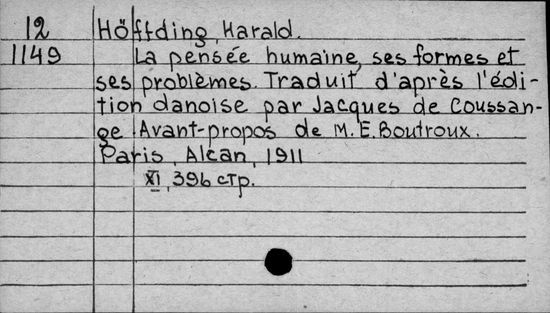 12 Höffding, Harald.
1149 La pensée humaine, ses formes et
ses problèmes. Traduit d'après l'édi-
tion danoise par Jacques de Coussan-
ge. Avant-propos de M. E. Boutroux.
Paris, Alcan, 1911
XI, 396 стр.